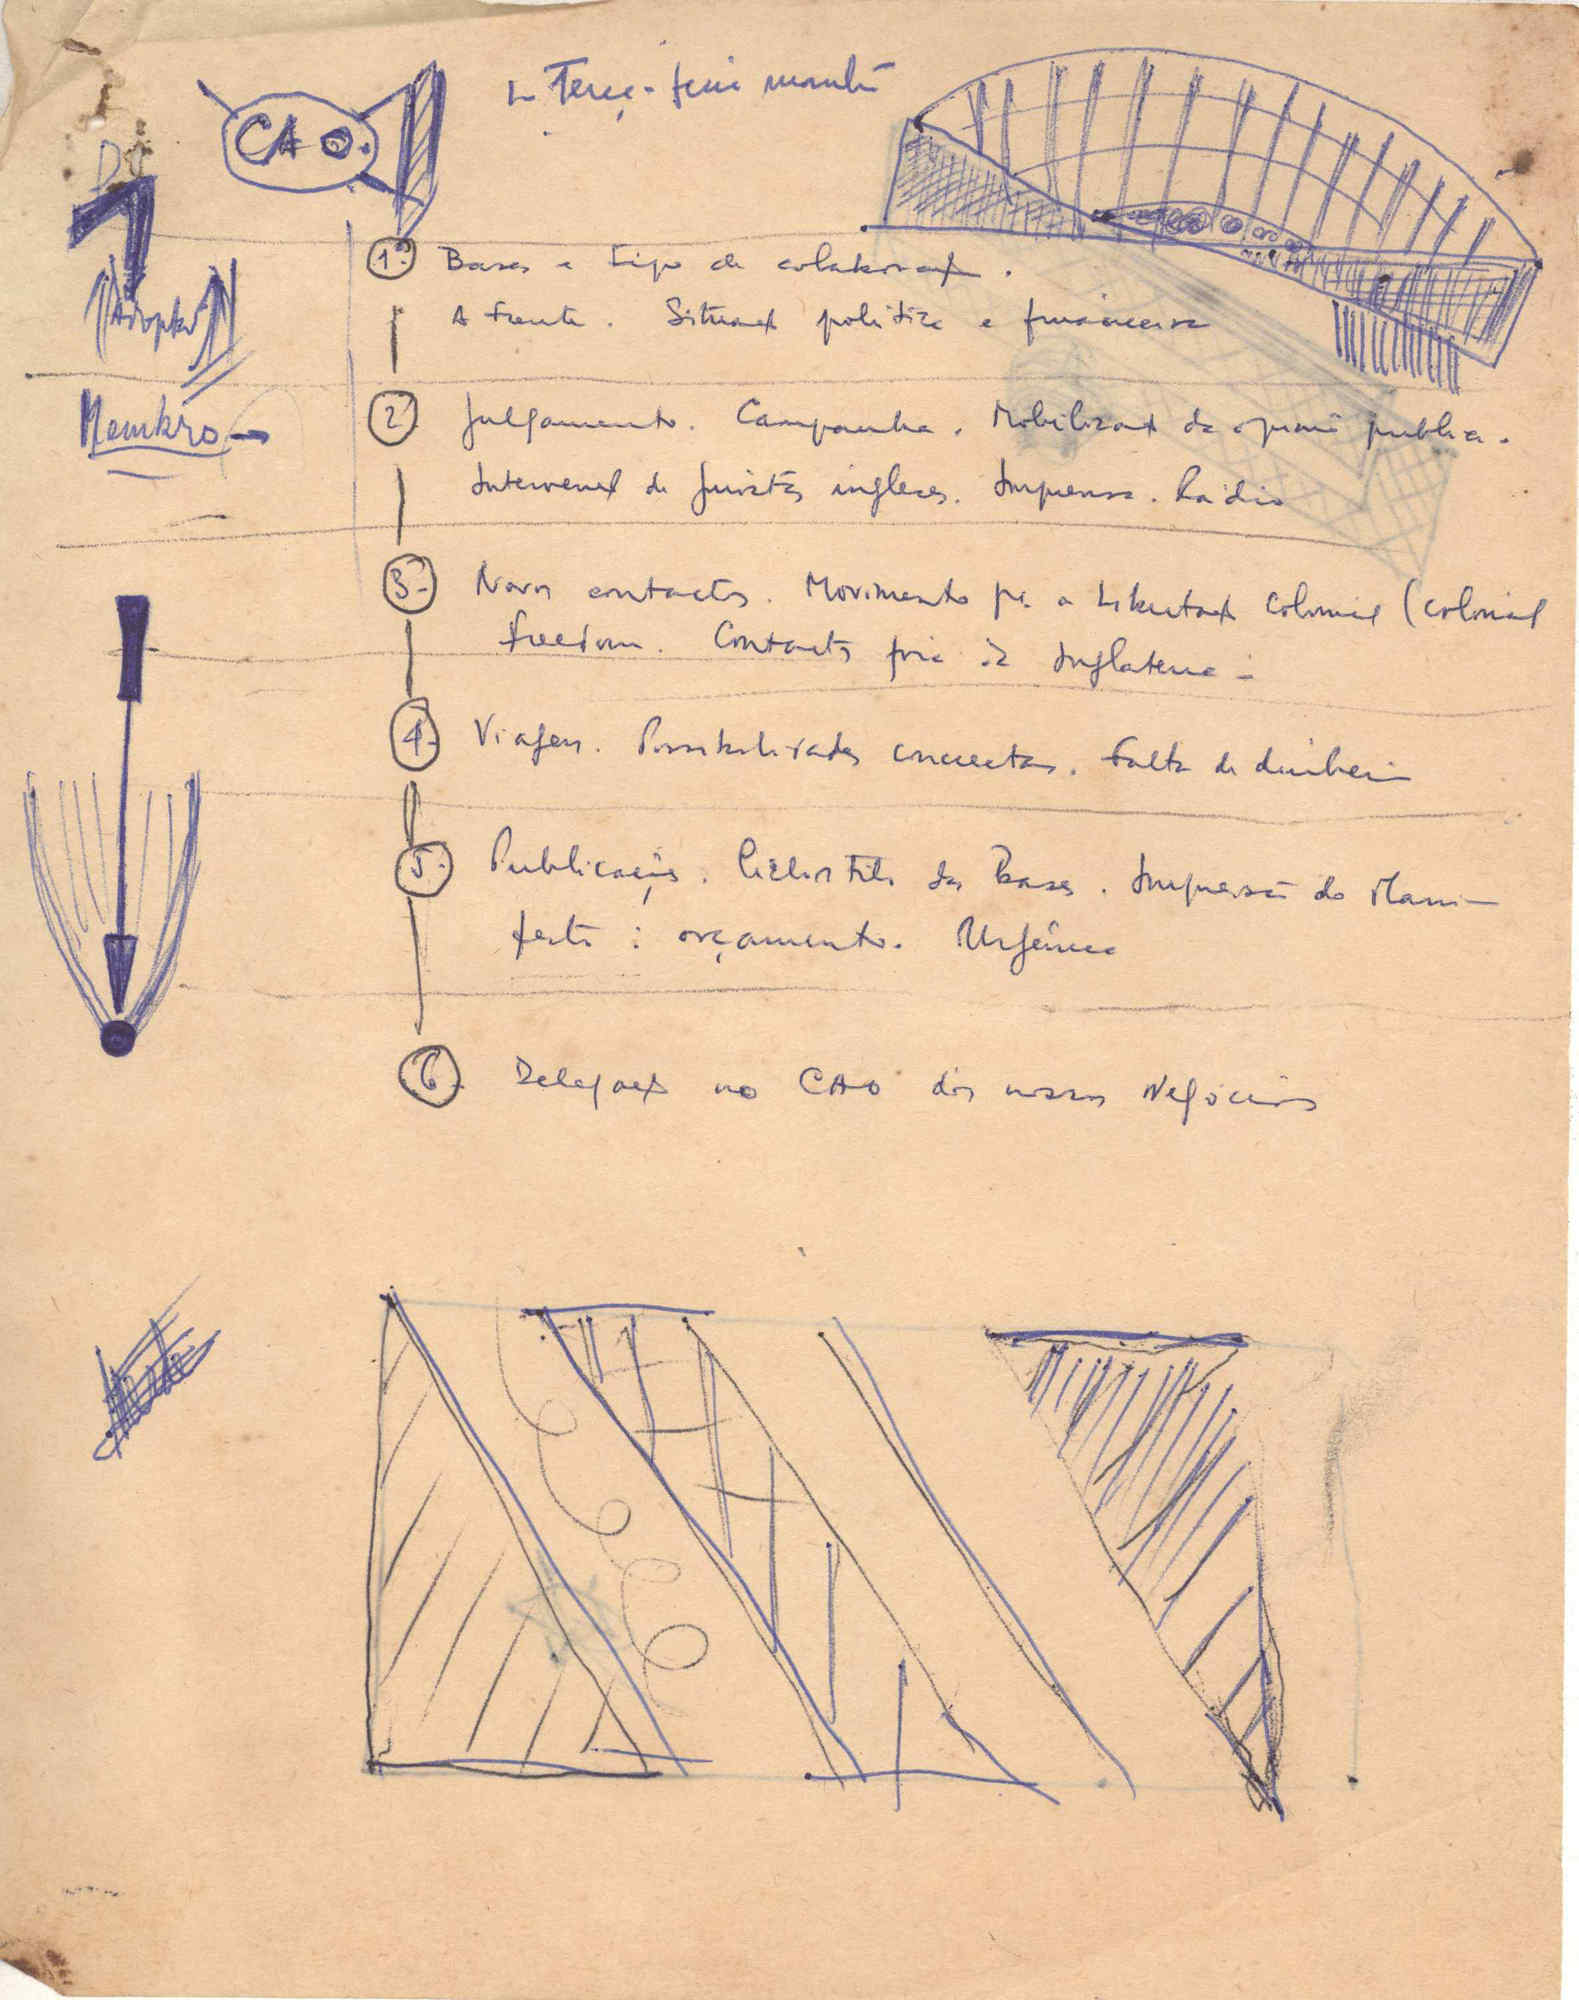 CAO.
Terça-feira manhã
1º Bases e tipo de colaboração.
A Frente. Situação política e financeira
2º Julgamento. Campanha. Mobilização da opinião pública.
Intervenção de juristas ingleses. Imprensa. Rádio
3- Novos contactos. Movimento pa a Libertação Colonial (colonial
freedom. Contacts fora da Inglaterra -
4- Viagem. Possibilidades concretas. Falta de dinheiro
5- Publicações. Ciclostilo das Bases. Impressão do Mani-
festo : orçamento. Urgência
6- Delegação no CAO dos nossos Negócios
Membro